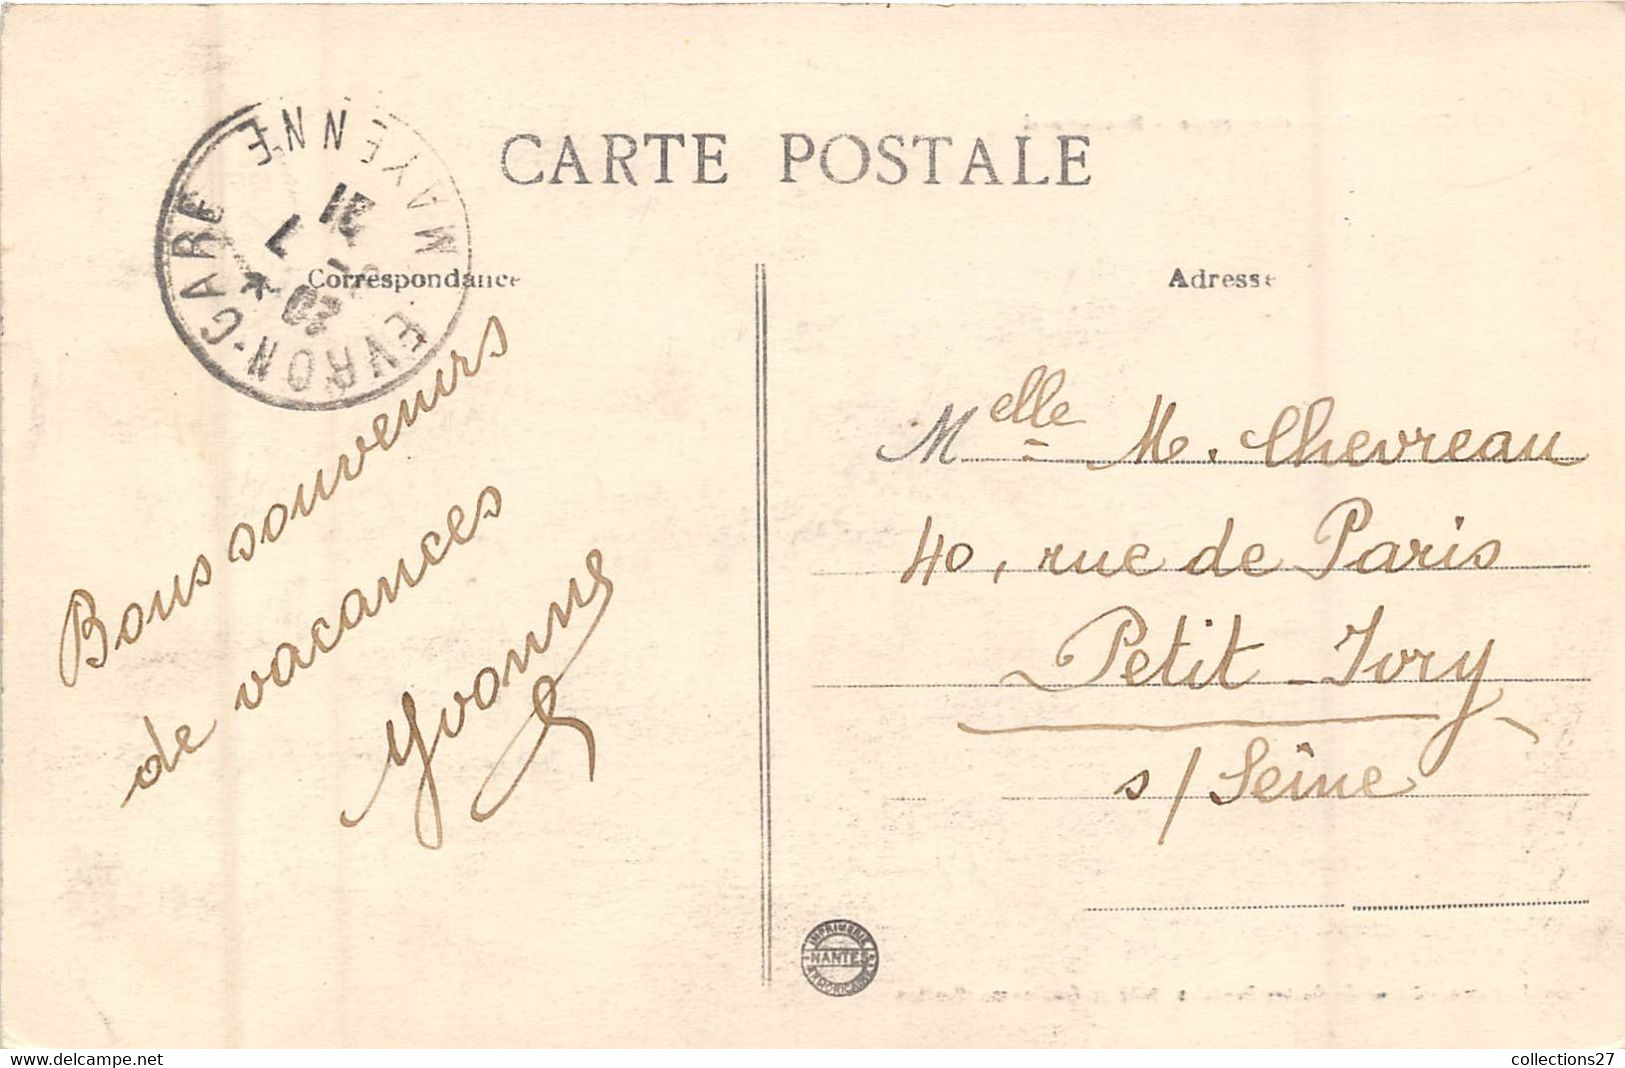 CARTE POSTALE
EVRON-GARE
MAYENNE
21
7
20
Correspondance
Adresse
Bons souvenirs
de vacances
Yvonne
Melle M. Chevreau
40, rue de Paris
Petit-Ivry
s/ Seine
IMPRIMERIE
NANTES
ARMORICAINE
collections27